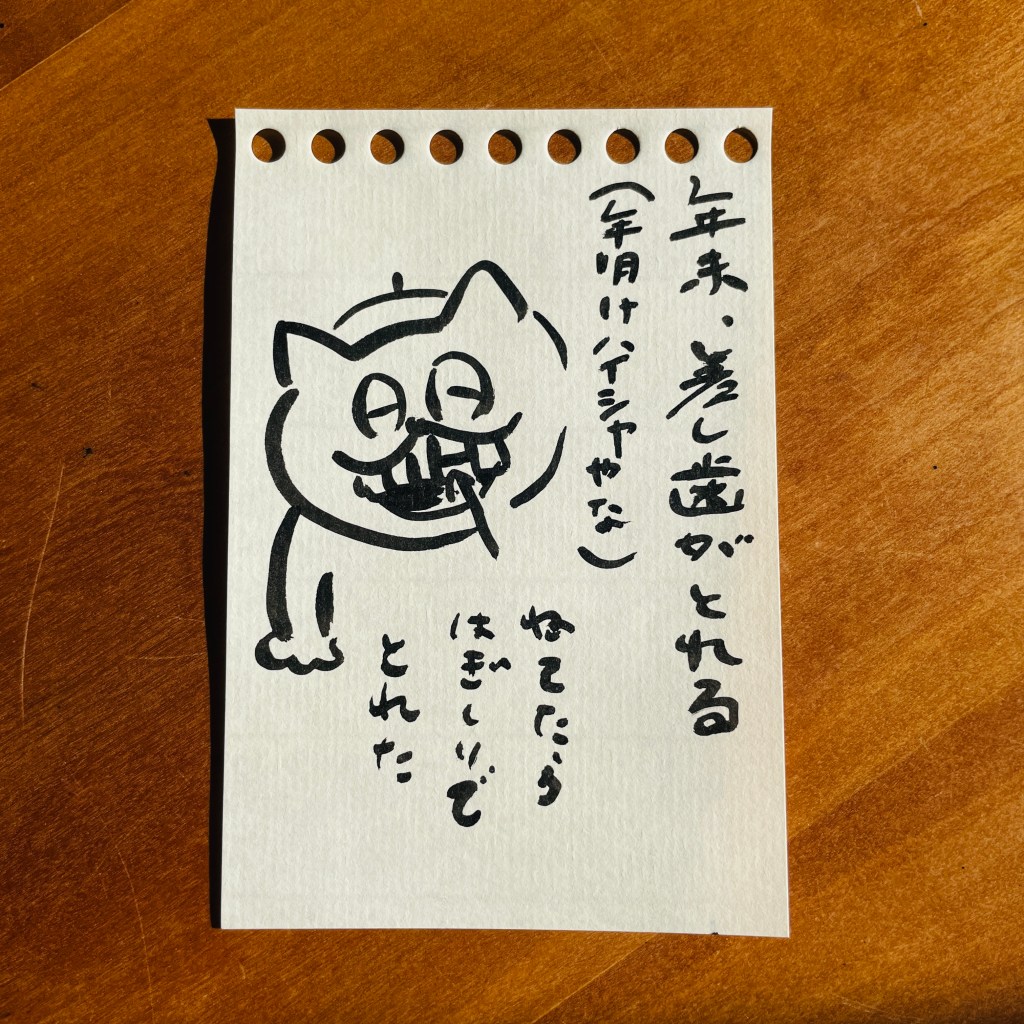 年末、差し歯がとれる
（年明けハイシャやな）
ねてたら
はぎしりで
とれた